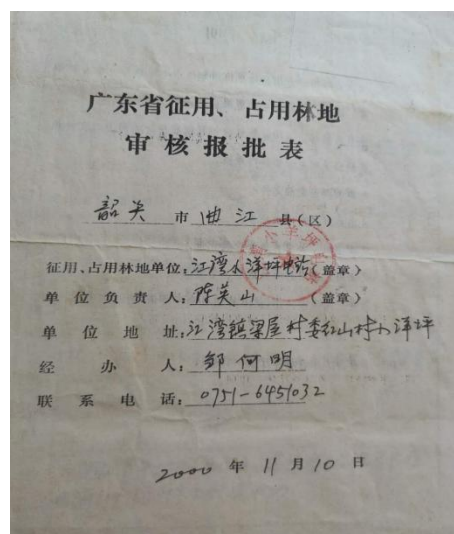 广东省征用、占用林地
审核报批表
韶关市曲江县(区)
征用、占用林地单位:江湾小洋坪电站(盖章)
单位负责人:陈英山(盖章)
单位地址:江湾镇梁屋村委红山村小洋坪
经办人:邹何明
联系电话:0751-6451032
2000年11月10日